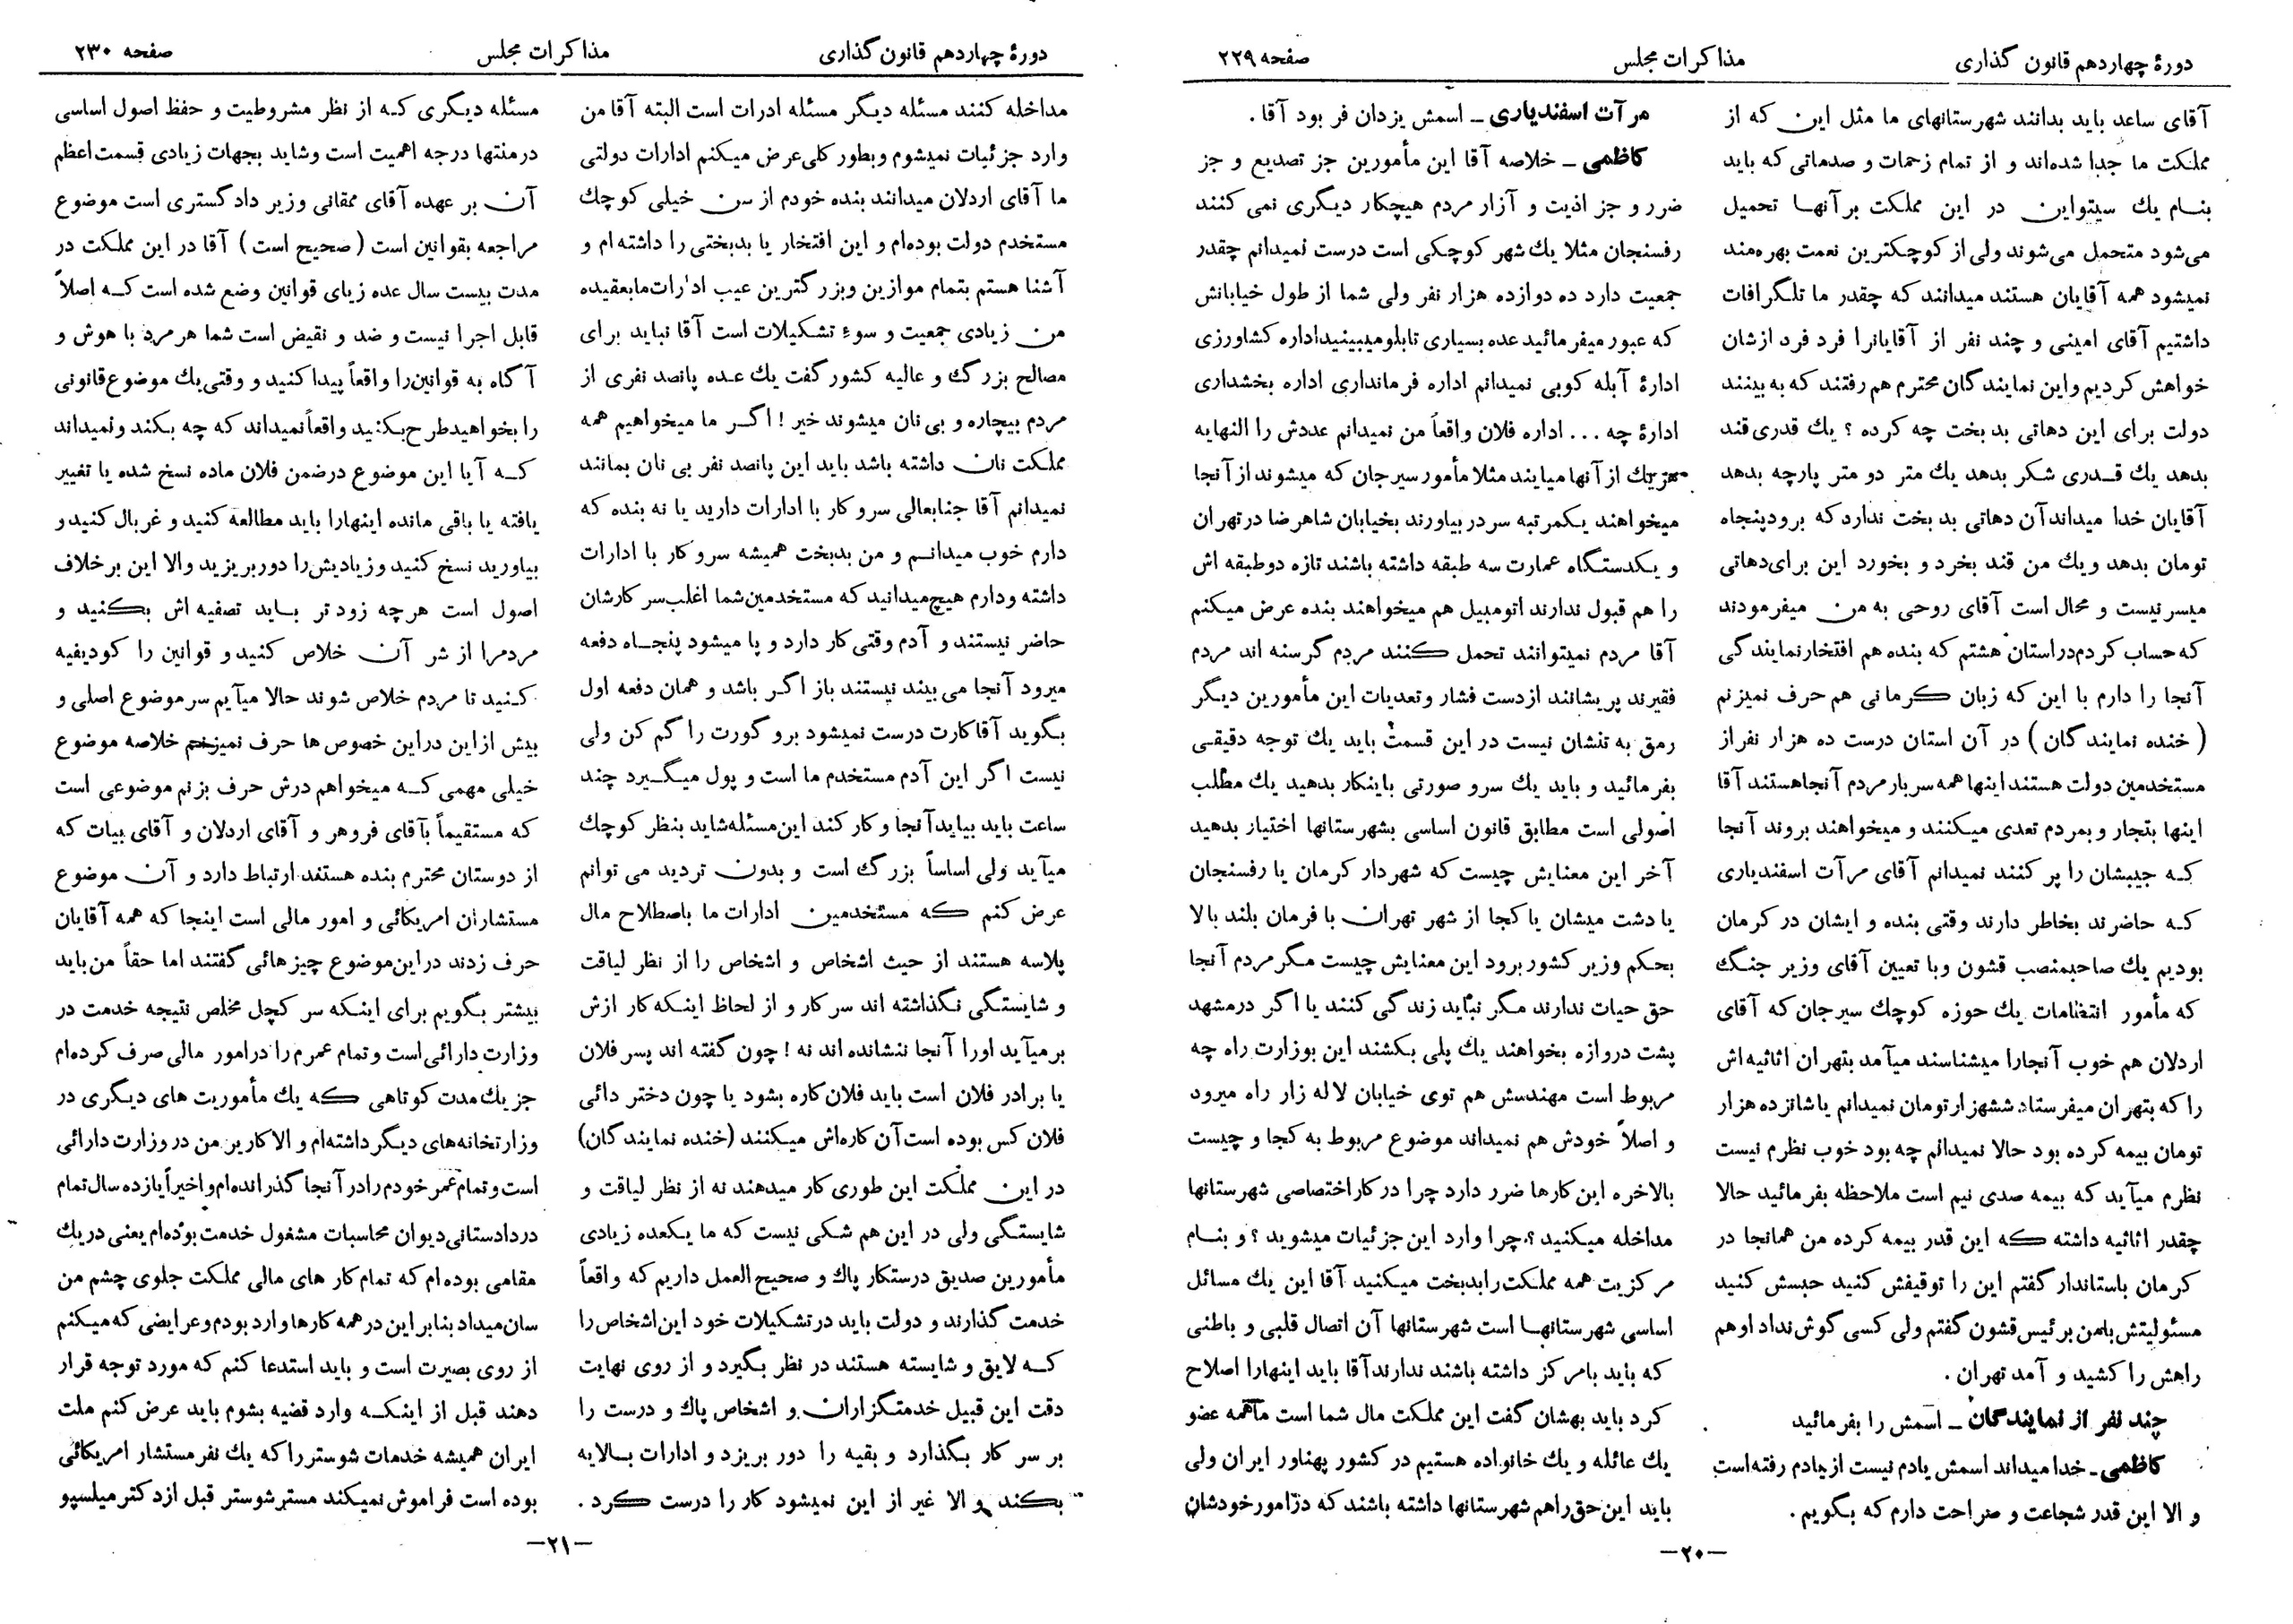 دورهٔ چهاردهم قانون گذاری
مذاکرات مجلس
صفحه ۲۲۹
آقای ساعد باید بدانند شهرستانهای ما مثل این که از
مملکت ما جدا شده‌اند و از تمام زحمات و صدماتی که باید
بنام یك سیتواین در این مملکت بر آنها تحمیل
می‌شود متحمل می‌شوند ولی از کوچکترین نعمت بهره‌مند
نمیشود همه آقایان هستند میدانند که چقدر ما تلگرافات
داشتیم آقای امینی و چند نفر از آقایانرا فرد فرد ازشان
خواهش کردیم و این نمایندگان محترم هم رفتند که به بینند
دولت برای این دهاتی بدبخت چه کرده ؟ یك قدری قند
بدهد یك قدری شکر بدهد یك متر دو متر پارچه بدهد
آقایان خدا میداند آن دهاتی بدبخت ندارد که برود پنجاه
تومان بدهد و یك من قند بخرد و بخورد این برای دهاتی
میسر نیست و محال است آقای روحی به من میفرمودند
که حساب کردم در استان هشتم که بنده هم افتخار نمایندگی
آنجا را دارم با این که زبان کرمانی هم حرف نمیزنم
( خنده نمایندگان ) در آن استان درست ده هزار نفر از
مستخدمین دولت هستند اینها همه سربار مردم آنجا هستند آقا
اینها بتجار و بمردم تعدی میکنند و میخواهند بروند آنجا
که جیبشان را پر کنند نمیدانم آقای مرآت اسفندیاری
که حاضرند بخاطر دارند وقتی بنده و ایشان در کرمان
بودیم یك صاحبمنصب قشون و با تعیین آقای وزیر جنگ
که مأمور انتظامات یك حوزه کوچك سیرجان که آقای
اردلان هم خوب آنجارا میشناسند میآمد بتهران اثاثیه‌اش
را که بتهران میفرستاد ششهزار تومان نمیدانم یا شانزده هزار
تومان بیمه کرده بود حالا نمیدانم چه بود خوب نظرم نیست
نظرم میآید که بیمه صدی نیم است ملاحظه بفرمائید حالا
چقدر اثاثیه داشته که این قدر بیمه کرده من همانجا در
کرمان باستاندار گفتم این را توقیفش کنید حبسش کنید
مسئولیتش بامن برئیس قشون گفتم ولی کسی گوش نداد او هم
راهش را کشید و آمد تهران .
چند نفر از نمایندگان ـ اسمش را بفرمائید
کاظمی ـ خدا میداند اسمش یادم نیست از یادم رفته‌است
و الا این قدر شجاعت و صراحت دارم که بگویم .
مرآت اسفندیاری ـ اسمش یزدان فر بود آقا .
کاظمی ـ خلاصه آقا این مأمورین جز تصدیع و جز
ضرر و جز اذیت و آزار مردم هیچکار دیگری نمی کنند
رفسنجان مثلا یك شهر کوچکی است درست نمیدانم چقدر
جمعیت دارد ده دوازده هزار نفر ولی شما از طول خیابانش
که عبور میفرمائید عده بسیاری تابلو میبینید اداره کشاورزی
ادارهٔ آبله کوبی نمیدانم اداره فرمانداری اداره بخشداری
ادارهٔ چه ... اداره فلان واقعاً من نمیدانم عددش را النهایه
هر یك از آنها میایند مثلا مأمور سیرجان که میشوند از آنجا
میخواهند یکمرتبه سر در بیاورند بخیابان شاهرضا در تهران
و یکدستگاه عمارت سه طبقه داشته باشند تازه دو طبقه اش
را هم قبول ندارند اتومبیل هم میخواهند بنده عرض میکنم
آقا مردم نمیتوانند تحمل کنند مردم گرسنه اند مردم
فقیرند پریشانند از دست فشار و تعدیات این مأمورین دیگر
رمق به تنشان نیست در این قسمت باید یك توجه دقیقی
بفرمائید و باید یك سرو صورتی باینکار بدهید یك مطلب
اصولی است مطابق قانون اساسی بشهرستانها اختیار بدهید
آخر این معنایش چیست که شهردار کرمان یا رفسنجان
یا دشت میشان یا کجا از شهر تهران با فرمان بلند بالا
بحکم وزیر کشور برود این معنایش چیست مگر مردم آنجا
حق حیات ندارند مگر نباید زندگی کنند یا اگر در مشهد
پشت دروازه بخواهند یك پلی بکشند این بوزارت راه چه
مربوط است مهندسش هم توی خیابان لاله زار راه میرود
و اصلاً خودش هم نمیداند موضوع مربوط به کجا و چیست
بالاخره این کارها ضرر دارد چرا در کار اختصاصی شهرستانها
مداخله میکنید ؟ چرا وارد این جزئیات میشوید ؟ و بنام
مرکزیت همه مملکت را بدبخت میکنید آقا این یك مسائل
اساسی شهرستانها است شهرستانها آن اتصال قلبی و باطنی
که باید بامرکز داشته باشند ندارند آقا باید اینهارا اصلاح
کرد باید بهشان گفت این مملکت مال شما است ما همه عضو
یك عائله و یك خانواده هستیم در کشور پهناور ایران ولی
باید این حق را هم شهرستانها داشته باشند که در امور خودشان
ـ۲۰ـ
دورهٔ چهاردهم قانون گذاری
مذاکرات مجلس
صفحه ۲۳۰
مداخله کنند مسئله دیگر مسئله ادرات است البته آقا من
وارد جزئیات نمیشوم و بطور کلی عرض میکنم ادارات دولتی
ما آقای اردلان میدانند بنده خودم از سن خیلی کوچك
مستخدم دولت بوده‌ام و این افتخار یا بدبختی را داشته‌ام و
آشنا هستم بتمام موازین و بزرگترین عیب ادارات ما بعقیده
من زیادی جمعیت و سوء تشکیلات است آقا نباید برای
مصالح بزرگ و عالیه کشور گفت یك عده پانصد نفری از
مردم بیچاره و بی نان میشوند خیر ! اگر ما میخواهیم همه
مملکت نان داشته باشد باید این پانصد نفر بی نان بمانند
نمیدانم آقا جنابعالی سروکار با ادارات دارید یا نه بنده که
دارم خوب میدانم و من بدبخت همیشه سروکار با ادارات
داشته ودارم هیچ میدانید که مستخدمین شما اغلب سر کارشان
حاضر نیستند و آدم وقتی کار دارد و پا میشود پنجاه دفعه
میرود آنجا می بیند نیستند باز اگر باشد و همان دفعه اول
بگوید آقا کارت درست نمیشود برو گورت را گم کن ولی
نیست اگر این آدم مستخدم ما است و پول میگیرد چند
ساعت باید بیاید آنجا و کار کند این مسئله شاید بنظر کوچك
میآید ولی اساساً بزرگ است و بدون تردید می توانم
عرض کنم که مستخدمین ادارات ما باصطلاح مال
پلاسه هستند از حیث اشخاص و اشخاص را از نظر لیاقت
و شایستگی نگذاشته اند سر کار و از لحاظ اینکه کار ازش
برمیآید اورا آنجا ننشانده اند نه ! چون گفته اند پسر فلان
یا برادر فلان است باید فلان کاره بشود یا چون دختر دائی
فلان کس بوده است آن کاره‌اش میکنند (خنده نمایندگان)
در این مملکت این طوری کار میدهند نه از نظر لیاقت و
شایستگی ولی در این هم شکی نیست که ما یکعده زیادی
مأمورین صدیق درستکار پاك و صحیح العمل داریم که واقعاً
خدمت گذارند و دولت باید در تشکیلات خود این اشخاص را
که لایق و شایسته هستند در نظر بگیرد و از روی نهایت
دقت این قبیل خدمتگزاران و اشخاص پاك و درست را
بر سر کار بگذارد و بقیه را دور بریزد و ادارات بالایه
بکند و الا غیر از این نمیشود کار را درست کرد .
مسئله دیگری که از نظر مشروطیت و حفظ اصول اساسی
در منتها درجه اهمیت است وشاید بجهات زیادی قسمت اعظم
آن بر عهده آقای ممقانی وزیر دادگستری است موضوع
مراجعه بقوانین است (صحیح است) آقا در این مملکت در
مدت بیست سال عده زیای قوانین وضع شده است که اصلاً
قابل اجرا نیست و ضد و نقیض است شما هر مرد با هوش و
آگاه به قوانین را واقعاً پیدا کنید و وقتی یك موضوع قانونی
را بخواهید طرح بکنید واقعاً نمیداند که چه بکند ونمیداند
که آیا این موضوع در ضمن فلان ماده نسخ شده یا تغییر
یافته یا باقی مانده اینهارا باید مطالعه کنید و غربال کنید و
بیاورید نسخ کنید وزیادیش را دور بریزید والا این برخلاف
اصول است هرچه زود تر باید تصفیه اش بکنید و
مردمرا از شر آن خلاص کنید و قوانین را کودیفیه
کنید تا مردم خلاص شوند حالا میآیم سر موضوع اصلی و
بیش از این دراین خصوص ها حرف نمیزنم خلاصه موضوع
خیلی مهمی که میخواهم درش حرف بزنم موضوعی است
که مستقیماً بآقای فروهر و آقای اردلان و آقای بیات که
از دوستان محترم بنده هستند ارتباط دارد و آن موضوع
مستشاران امریکائی و امور مالی است اینجا که همه آقایان
حرف زدند در این موضوع چیزهائی گفتند اما حقاً من باید
بیشتر بگویم برای اینکه سر کچل مخلص نتیجه خدمت در
وزارت دارائی است و تمام عمرم را در امور مالی صرف کرده‌ام
جز یك مدت کوتاهی که یك مأموریت های دیگری در
وزارتخانه‌های دیگر داشته‌ام و الا کاریر من در وزارت دارائی
است و تمام عمر خودم را در آنجا گذرانده‌ام و اخیراً یازده سال تمام
در دادستانی دیوان محاسبات مشغول خدمت بوده‌ام یعنی در یك
مقامی بوده ام که تمام کار های مالی مملکت جلوی چشم من
سان میداد بنابراین در همه کارها وارد بودم و عرایضی که میکنم
از روی بصیرت است و باید استدعا کنم که مورد توجه قرار
دهند قبل از اینکه وارد قضیه بشوم باید عرض کنم ملت
ایران همیشه خدمات شوستر را که یك نفر مستشار امریکائی
بوده است فراموش نمیکند مستر شوستر قبل از دکتر میلسپو
ـ۲۱ـ